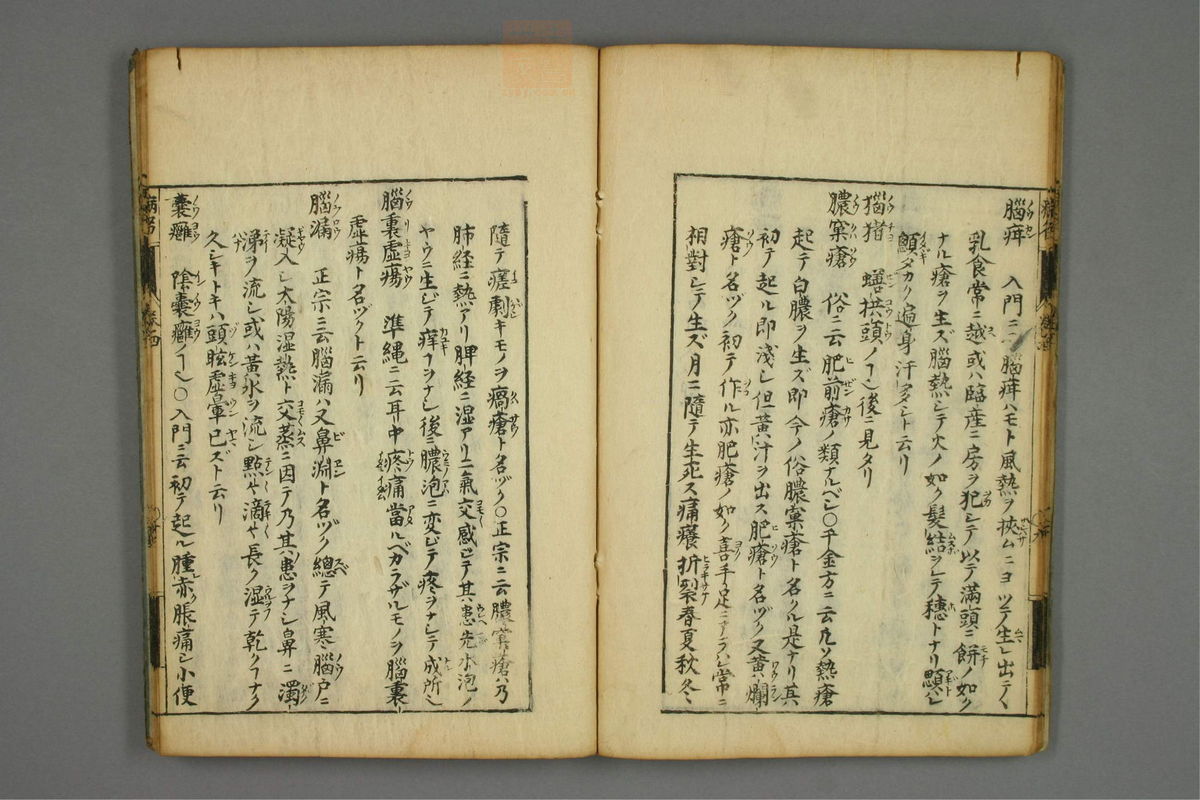 腦疳 入門ニ云腦疳ハモト風熱ヲ挾ムニヨツテ生レ出テ
乳食常ニ越或ハ臨産ニ房ヲ犯シテ以テ滿頭ニ餅ノ如ク
ナル瘡ヲ生ズ腦熱シテ火ノ如ク髮結ヲレテ穗トナリ
タカク遍身汗多シト云リ
猫猪 蟮拱頭ノヿ也後ニ見タリ
膿窠瘡 俗ニ云肥前瘡ノ類ナルベシ〇千金方ニ云凡ソ熱瘡
起テ白膿ヲ生ズ即今ノ俗膿窠瘡ト名クル是ナリ其
初テ起ル即淺シ但黃汁ヲ出ス肥瘡ト名ヅク又黃爛
瘡ト名ヅク初テ作ル亦肥瘡ノ如ク喜手足ニアラハレ常ニ
相對シテ生ズ月ニ隨テ生死ス痛癢折裂春夏秋冬
隨テ瘥劇キモノヲ瘑瘡ト名ヅク〇正宗ニ云膿窠瘡ハ乃
肺経ニ熱アリ脾経ニ湿アリ二氣交感ジテ其患先水泡ノ
ヤウニ生ジテ痒ヲナシ後ニ膿泡ニ変ジテ疼ヲナシテ成所也
腦裏虛瘍 準繩ニ云耳中疼痛當ルベカラザルモノヲ腦裏
虛瘍ト名ヅクト云リ
腦漏 正宗ニ云腦漏ハ又鼻淵ト名ヅク總テ風寒腦戸ニ
凝入シ太陽湿熱ト交蒸ニ因テ乃其患ヲナシ鼻ニ濁
涕ヲ流シ或ハ黃水ヲ流シ點〻滴〻長ク湿テ乾クフナク
久シキトキハ頭眩虛暈已ズト云リ
囊癰 陰囊癰ノヿ也〇入門ニ云初テ起ル腫赤ク脹痛シ小便